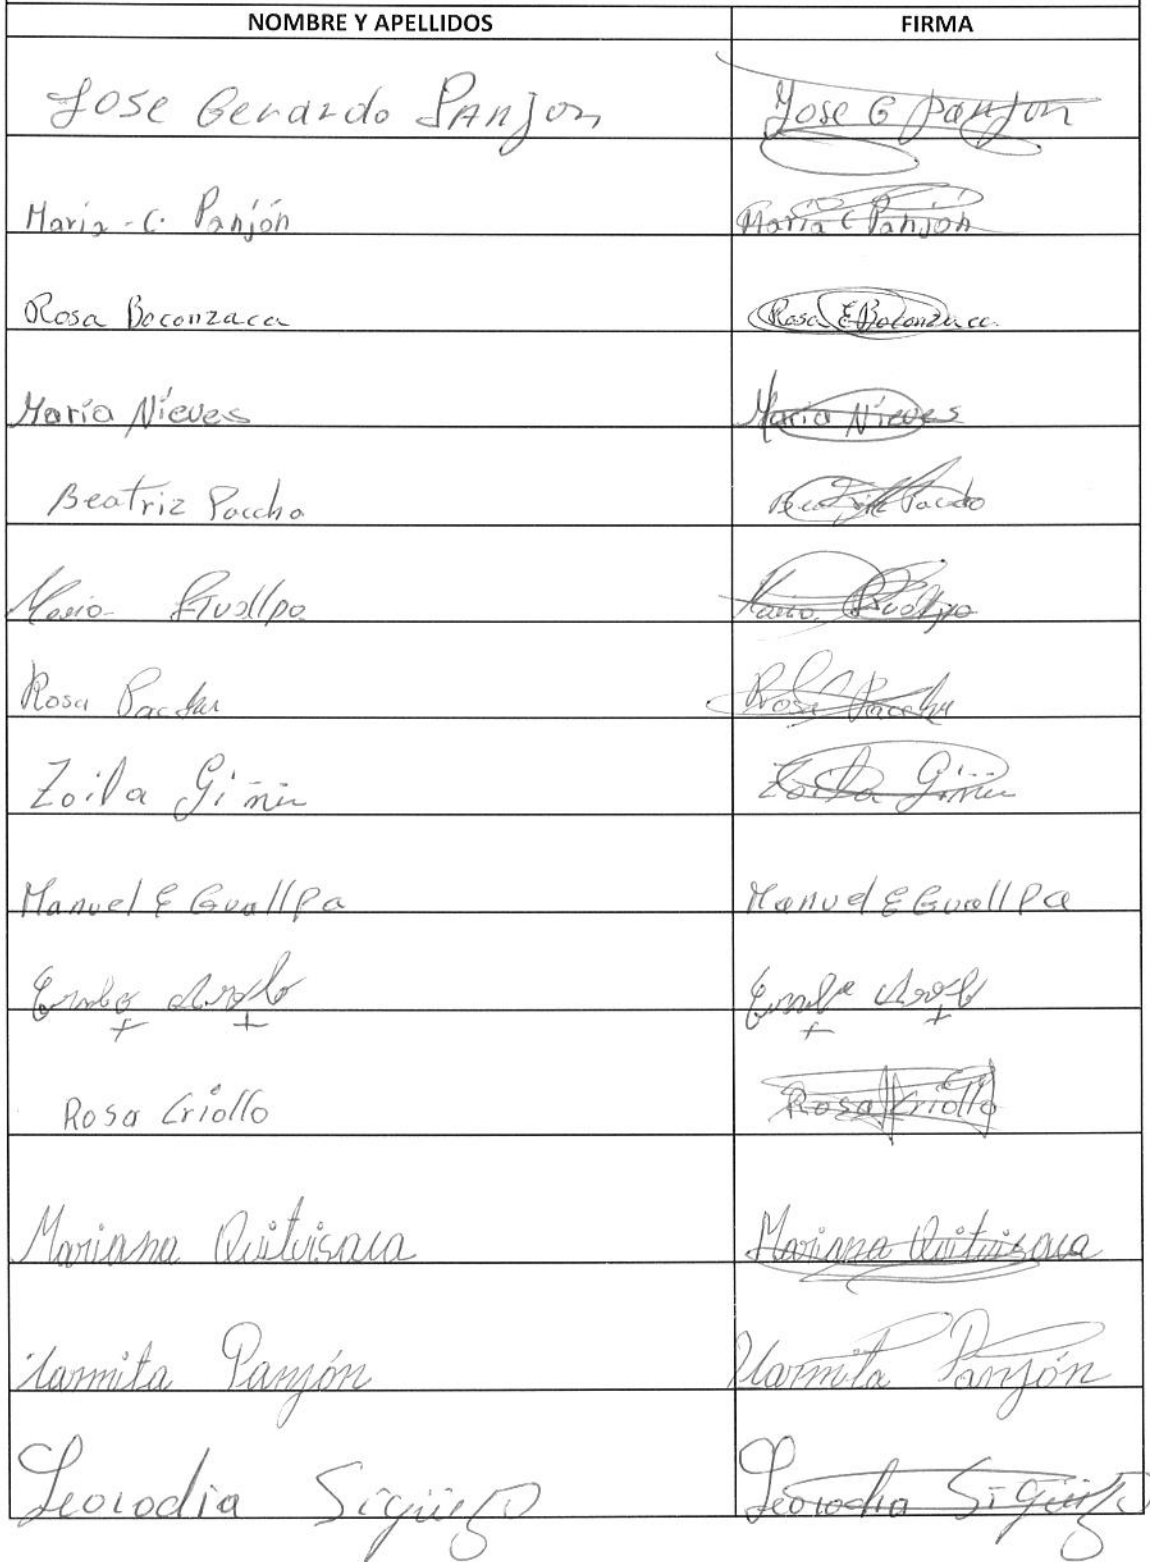 NOMBRE Y APELLIDOS FIRMA
Jose Gerardo Panjon Jose G Panjon
Maria - C. Panjón Maria C Panjón
Rosa Boconzaca Rosa E Boconzaca
María Nieves María Nieves
Beatriz Paccha Beatriz
Maria Guallpa Maria Guallpa
Rosa Rosa
Zoila Giñin Zoila Giñin
Manuel E Guallpa Manuel E Guallpa
Rosa Criollo Rosa Criollo
Mariana Quituisaca Mariana Quituisaca
Panjón Panjón
Leocodia Sigüenza